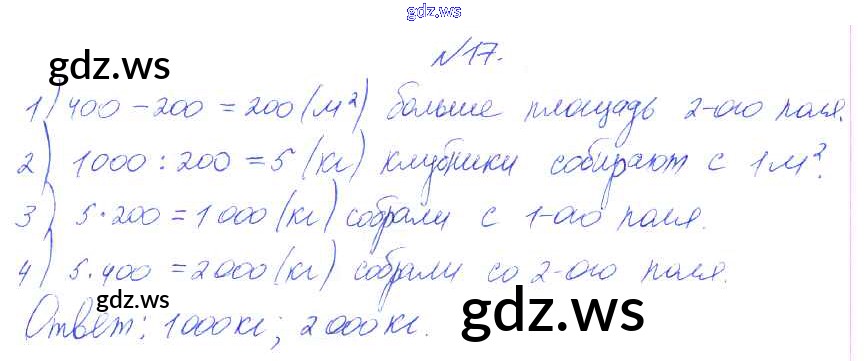 gdz.ws
№17.
gdz.ws
1) 400 - 200 = 200 (м²) больше площадь 2-ого поля.
2) 1000 : 200 = 5 (кг) клубники собирают с 1 м².
3) 5·200 = 1000 (кг) собрали с 1-ого поля.
4) 5·400 = 2000 (кг) собрали со 2-ого поля.
gdz.ws
gdz.ws
Ответ: 1000 кг; 2000 кг.